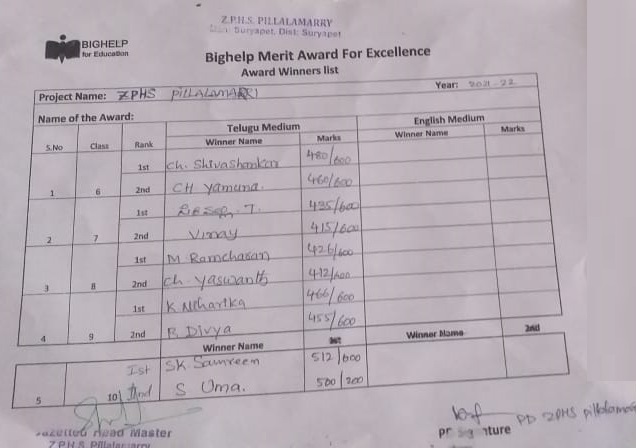 Z.P.H.S. PILLALAMARRY
Suryapet, Dist: Suryapet
BIGHELP
for Education
Bighelp Merit Award For Excellence
Award Winners list
Project Name: ZPHS PILLALAMARRI Year: 2021-22
Name of the Award:
Telugu Medium English Medium
S.No Class Rank Winner Name Marks Winner Name Marks
1st Ch. Shivashankar 480/600
1 6 2nd CH Yamuna. 460/600
1st T. 435/600
2 7 2nd Vinay 415/600
1st M Ramcharan 426/600
3 8 2nd Ch. Yaswanth 412/600
1st K Niharika 466/600
4 9 2nd R Divya 455/600
Winner Name Winner Name 2nd
Ist SK Samreen 512/600
5 10 IInd S Uma. 500/
Head Master
Z.P.H.S. Pillalamarry
PD ZPHS pillalamarri